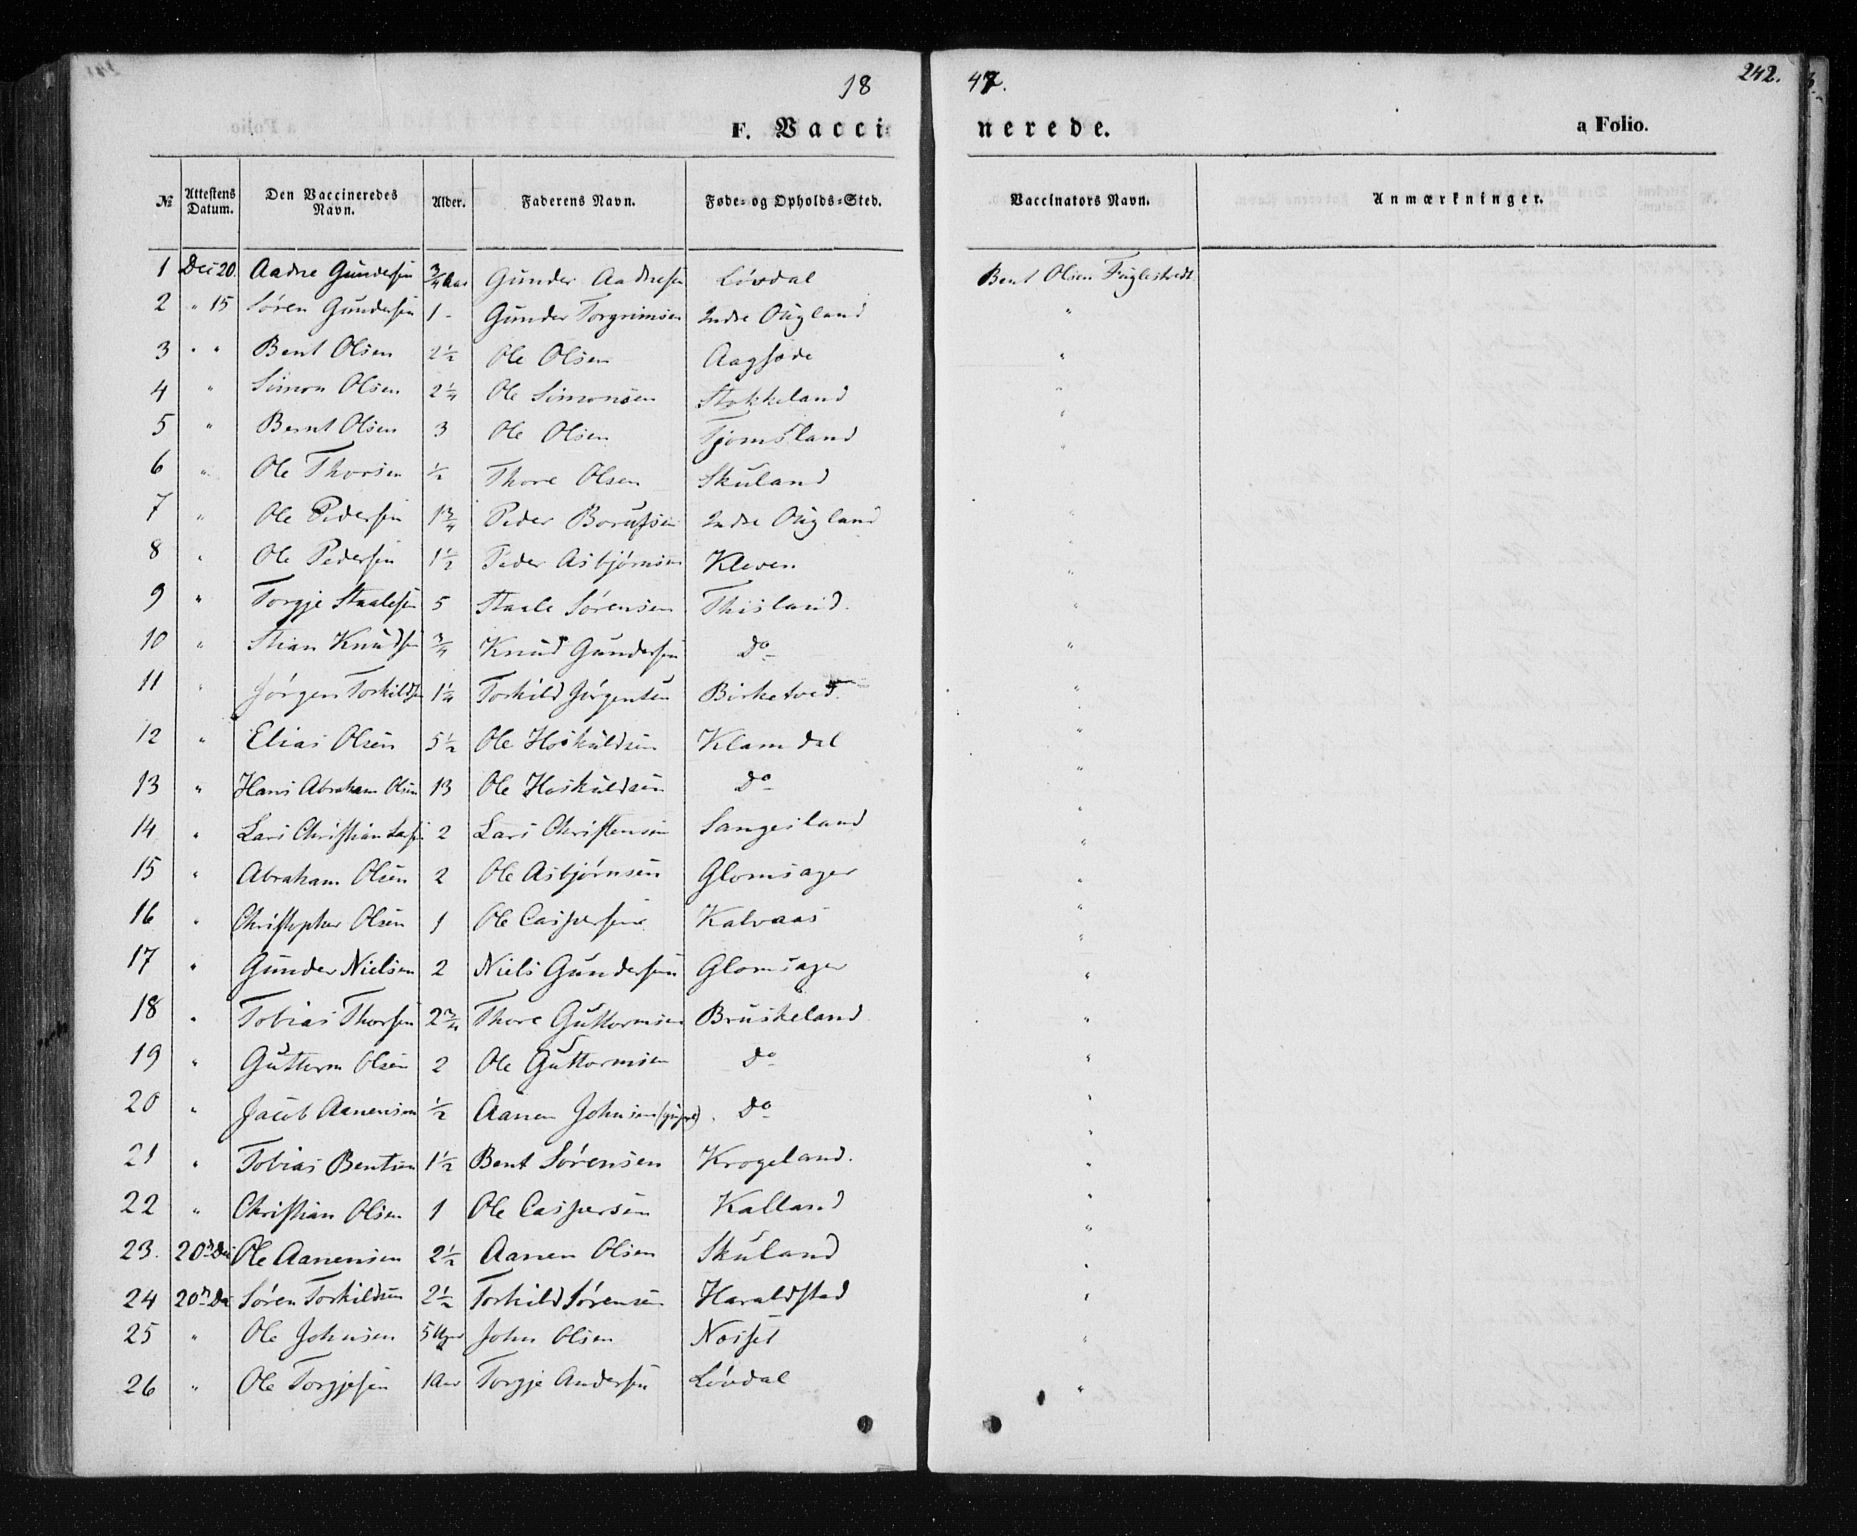 18 47. 242.
F. Vacci- nerede. a Folio.
№ Attestens Datum. Den Vaccineredes Navn. Alder. Faderens Navn. Føde- og Opholds-Sted. Vaccinators Navn. Anmærkninger.
1 Dec 20. Aadne Gundersen 3/4 Aar Gunder Aadnesen Løvdal Bent Olsen Fuglestvedt
2 " 15 Søren Gundersen 1 - Gunder Torgrimsen Indre Øugland "
3 " " Bent Olsen 2 1/2 Ole Olsen Aagsøde "
4 " Simon Olsen 2 1/4 Ole Simonsen Stokkeland "
5 " Bernt Olsen 3 Ole Olsen Tjomsland "
6 " Ole Thorsen 1/2 Thore Olsen Skuland "
7 " Ole Pedersen 1 3/4 Peder Indre Øugland "
8 " Ole Pedersen 1 1/2 Peder Asbjørnsen Kleven "
9 " Torgje Staalesen 5 Staale Sørensen Thisland. "
10 " Stian Knudsen 3/4 Knud Gundersen do "
11 " Jørgen Torkildsen 1 1/4 Torkild Jørgensen Birketved. "
12 " Elias Olsen 5 1/2 Ole Hoskuldsen Klamdal "
13 " Hans Abraham Olsen 13 Ole Hoskuldsen do "
14 " Lars Christian Larsen 2 Lars Christensen Sangesland "
15 " Abraham Olsen 2 Ole Asbjørnsen Glomsager "
16 " Christopher Olsen 1 Ole Caspersen Kalvaas "
17 " Gunder Nielsen 2 Niels Gundersen Glomsager "
18 " Tobias Thorsen 2 3/4 Thore Guttormsen Bruskeland "
19 " Guttorm Olsen 2 Ole Guttormsen do "
20 " Jacob Aanensen 1/2 Aanen Johnsen do "
21 " Tobias Bentsen 1 1/2 Bent Sørensen Krogeland. "
22 " Christian Olsen 1 Ole Caspersen Kalland "
23. 20 Dec Ole Aanensen 2 1/2 Aanen Olsen Skuland "
24 20 Dec Søren Torkildsen 2 1/2 Torkild Sørensen Haraldstad "
25 " Ole Johnsen 5 Uger John Olsen "
26 " Ole Torgjesen 1 Aar Torgje Andersen Løvdal "